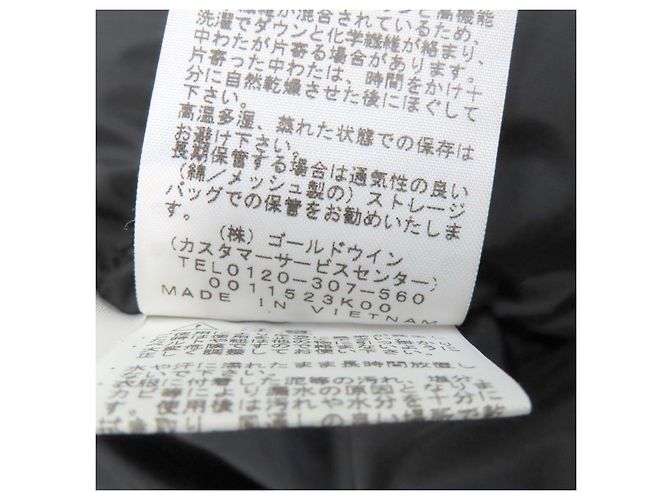 繊維が混合されているため、
洗濯でダウンと化学繊維が絡まり、
中わたが片寄る場合があります。
片寄った中わたは、時間をかけ十
分に自然乾燥させた後にほぐして
下さい。
高温多湿、蒸れた状態での保存は
お避け下さい。
長期保管する場合は通気性の良い
(綿/メッシュ製の)ストレージ
バッグでの保管をお勧めいたしま
す。
(株)ゴールドウイン
(カスタマーサービスセンター)
TEL0120-307-560
0011523K00
MADE IN VIETNAM
水や汗に濡れたまま長時間放置し
衣服に付着した泥等の汚れ、塩分
カビ等により漏水の原因となりま
す。使用後は汚れや水分を十分に